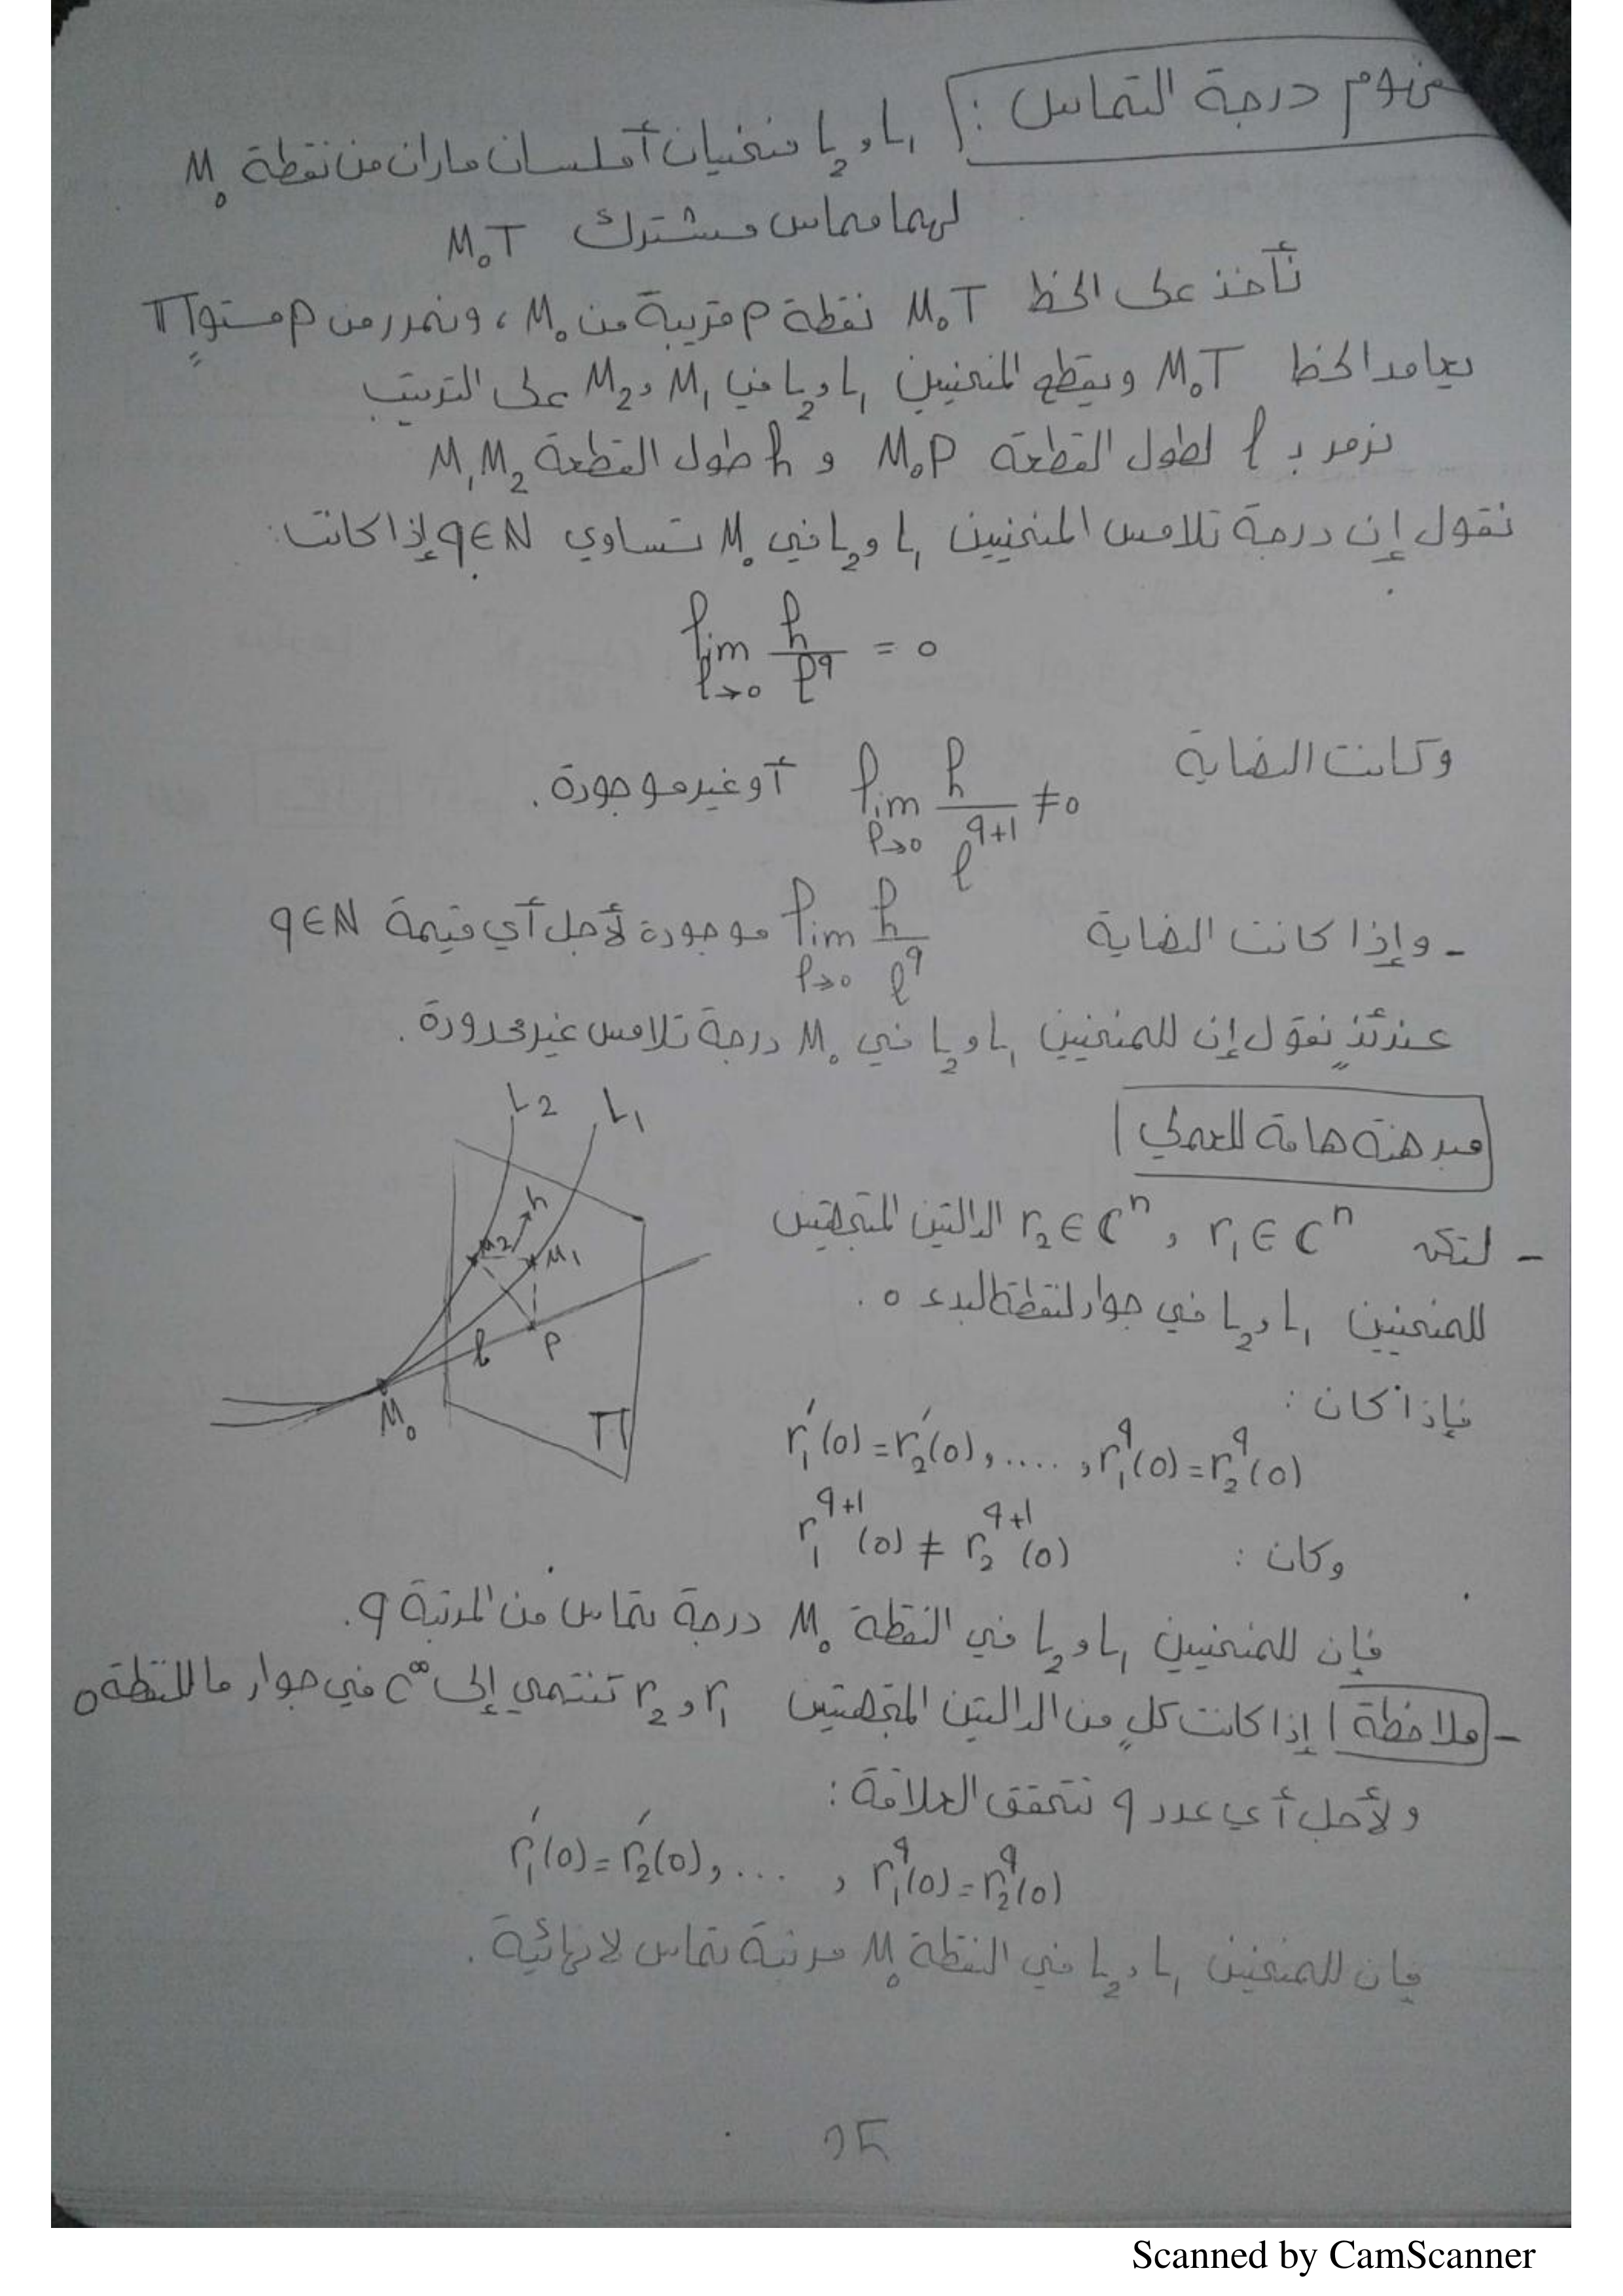 مفهوم درجة التماس: L₁ و L₂ منحنيان أملسان ماران من نقطة M₀
لهما مماس مشترك M₀T
نأخذ على الخط M₀T نقطة P قريبة من M₀ ، ونمرر من P مستوٍ Π
يعامد الخط M₀T ويقطع المنحنيين L₁ و L₂ في M₁ و M₂ على الترتيب
نرمز بـ l لطول القطعة M₀P و h طول القطعة M₁M₂
نقول إن درجة تلامس المنحنيين L₁ و L₂ في M₀ تساوي q∈N إذا كانت:
lim_{l→0} h/l^q = 0
وكانت النهاية lim_{l→0} h/l^{q+1} ≠ 0 أو غير موجودة.
- وإذا كانت النهاية lim_{l→0} h/l^q موجودة لأجل أي قيمة q∈N
عندئذٍ نقول إن للمنحنيين L₁ و L₂ في M₀ درجة تلامس غير محدودة.
L₂ L₁
h
M₂ M₁
l P
M₀ Π
مبرهنة هامة للعملي
- لتكن r₁∈Cⁿ , r₂∈Cⁿ الدالتين المتجهتين
للمنحنيين L₁ و L₂ في جوار لنقطة البدء 0.
فإذا كان:
r₁′(0)=r₂′(0), ...., r₁^q(0)=r₂^q(0)
وكان: r₁^{q+1}(0) ≠ r₂^{q+1}(0)
فإن للمنحنيين L₁ و L₂ في النقطة M₀ درجة تماس من المرتبة q.
- ملاحظة إذا كانت كلٍ من الدالتين المتجهتين r₁ و r₂ تنتمي إلى C^∞ في جوار ما للنقطة 0
ولأجل أي عدد q تتحقق العلاقة:
r₁′(0)=r₂′(0), ... , r₁^q(0)=r₂^q(0)
فإن للمنحنيين L₁ و L₂ في النقطة M₀ مرتبة تماس لا نهائية.
Scanned by CamScanner